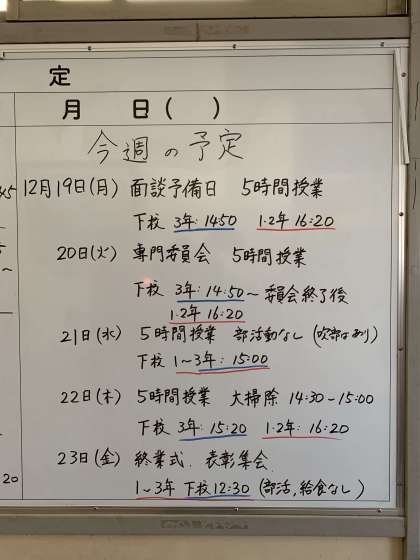 定
月 日( )
今週の予定
12月19日(月) 面談予備日 5時間授業
下校 3年: 14:50 1・2年 16:20
20日(火) 専門委員会 5時間授業
下校 3年: 14:50~委員会終了後
1・2年 16:20
21日(水) 5時間授業 部活動なし(吹部はあり)
下校 1~3年: 15:00
22日(木) 5時間授業 大掃除 14:30~15:00
下校 3年: 15:20 1・2年: 16:20
23日(金) 終業式. 表彰集会
1~3年 下校12:30 (部活,給食なし)
20